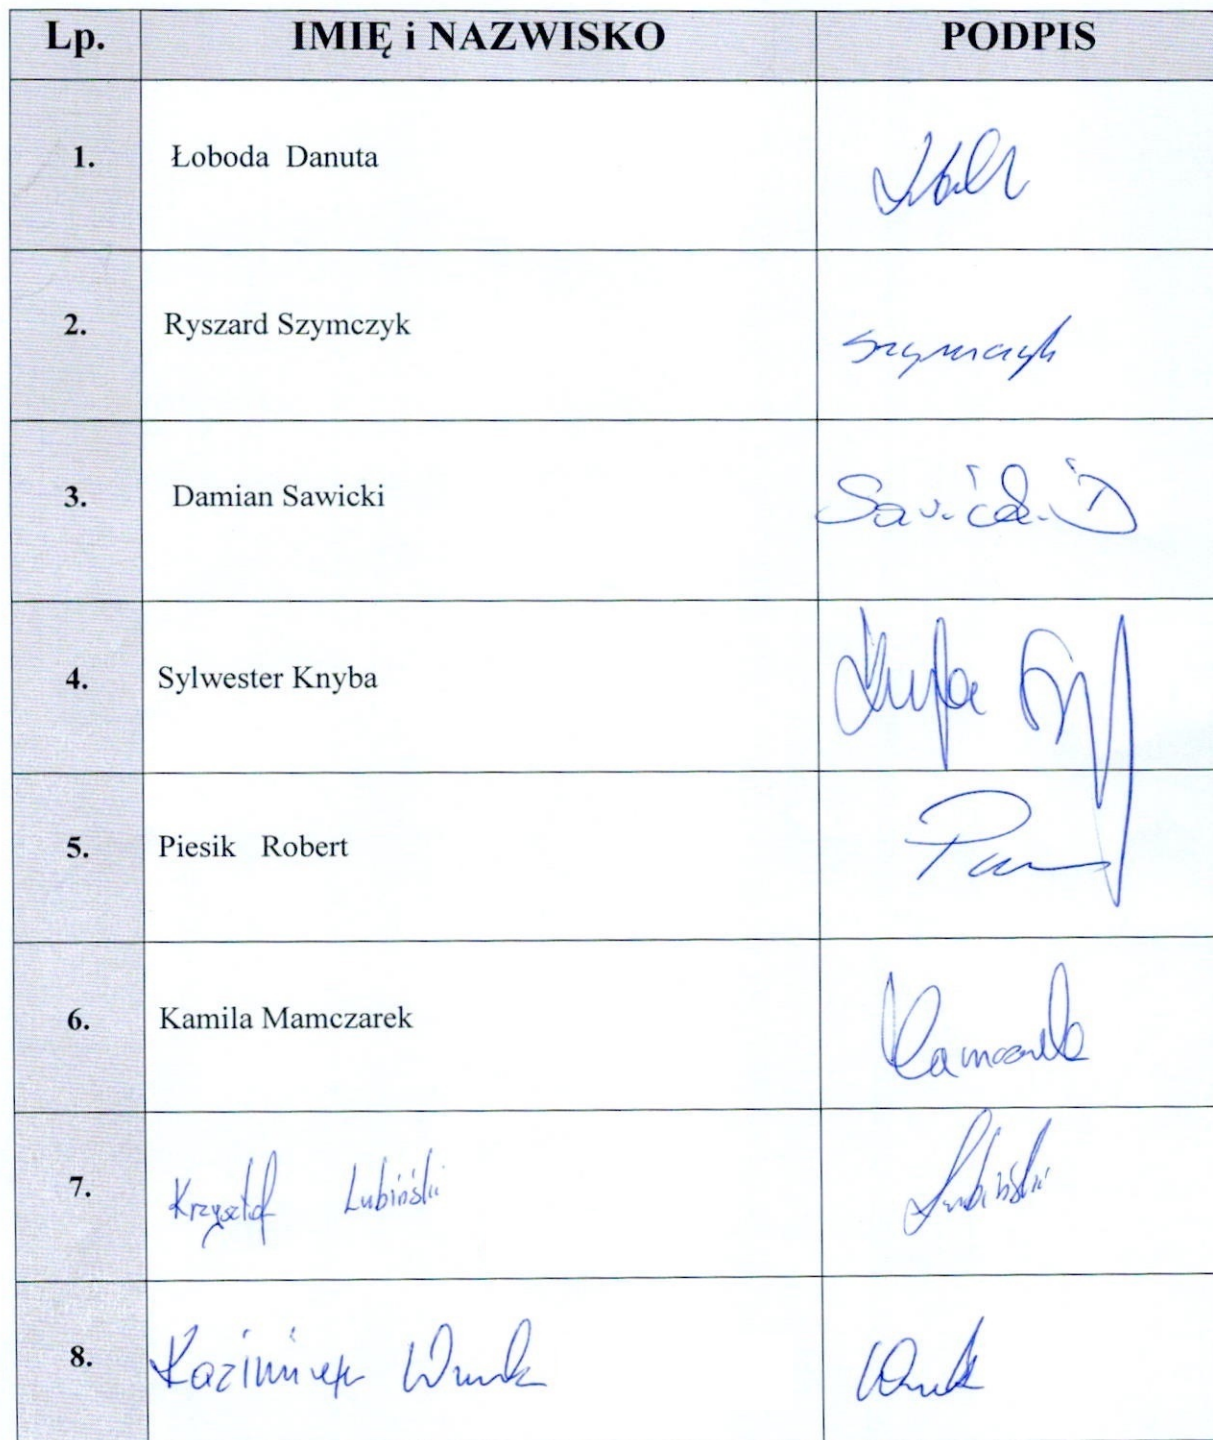 Lp. IMIĘ i NAZWISKO PODPIS
1. Łoboda Danuta
2. Ryszard Szymczyk Szymczyk
3. Damian Sawicki Sawicki D
4. Sylwester Knyba Knyba
5. Piesik Robert
6. Kamila Mamczarek Mamczarek
7. Krzysztof Lubiński Lubiński
8. Kazimierz